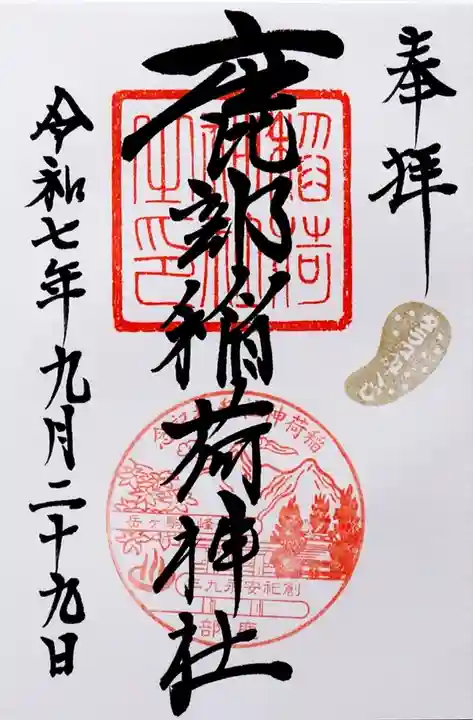 奉拝
鹿部稲荷神社
令和七年九月二十九日
稲荷神社之印
駒ヶ岳
創祀安永九年
鹿部